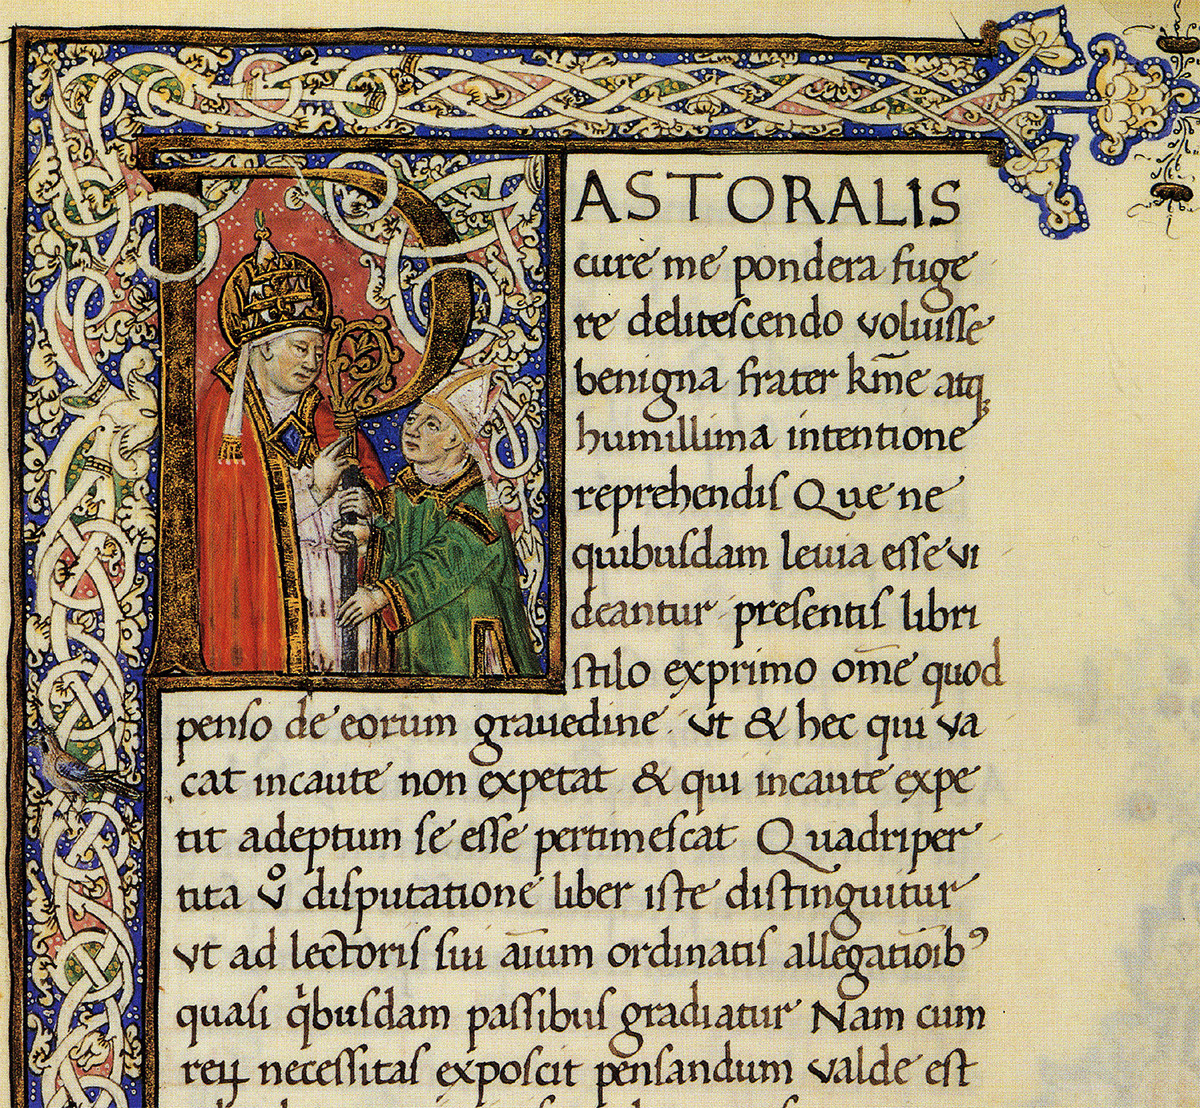 PASTORALIS
cure me pondera fuge
re delitescendo voluisse
benigna frater km̅e atq;
humillima intentione
reprehendis Que ne
quibusdam levia esse vi
deantur presentis libri
stilo exprimo om̅e quod
penso de eorum gravedine. ut & hec qui va
cat incaute non expetat & qui incaute expe
tit adeptum se esse pertimescat Quadriper
tita v̊ disputatione liber iste distinguitur
ut ad lectoris sui aı̅um ordinatis allegatio̅ib⁹
quasi qͥbusdam passibus gradiatur Nam cum
reꝝ necessitas exposcit pensandum valde est